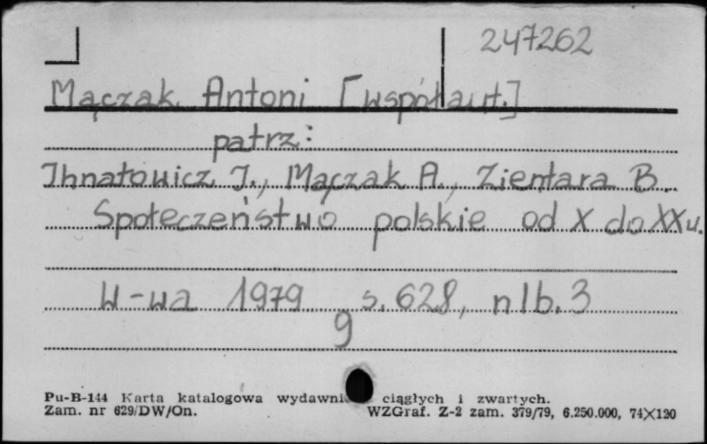 247262
Mączak Antoni [współaut.]
patrz:
Ihnatowicz I., Mączak A., Zientara B.
Społeczeństwo polskie od X do XX w.
W-wa 1979 s. 628, nlb. 3
9
Pu-B-144 Karta katalogowa wydawni ciągłych i zwartych.
Zam. nr 629/DW/On. WZGraf. Z-2 zam. 379/79, 6.250.000, 74×120